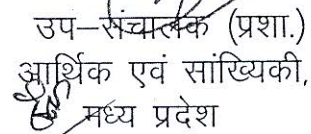 उप–संचालक (प्रशा.)
आर्थिक एवं सांख्यिकी,
मध्य प्रदेश